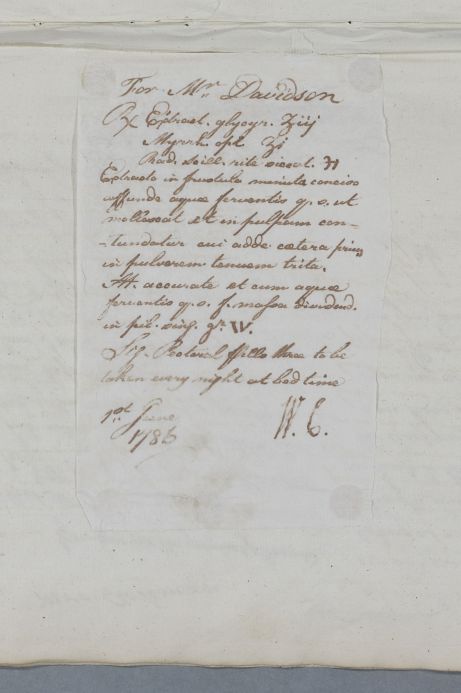 For Mr Davidson
Rx Extract. glycyr. ʒiij
Myrrh. opt. ʒi
Rad. scill. rite siccat. ℈i
Extracto in frustula minuta conciso
affunde aquæ ferventis q. s. ut
mollescat et in pulpam con-
-tundatur cui adde cætera prius
in pulverem tenuem trita.
M. accurate et cum aquæ
ferventis q. s. f. massa dividend.
in pil. sing. gr. IV.
Sig. Pectoral Pills three to be
taken every night at bed time
1st June
W. C.